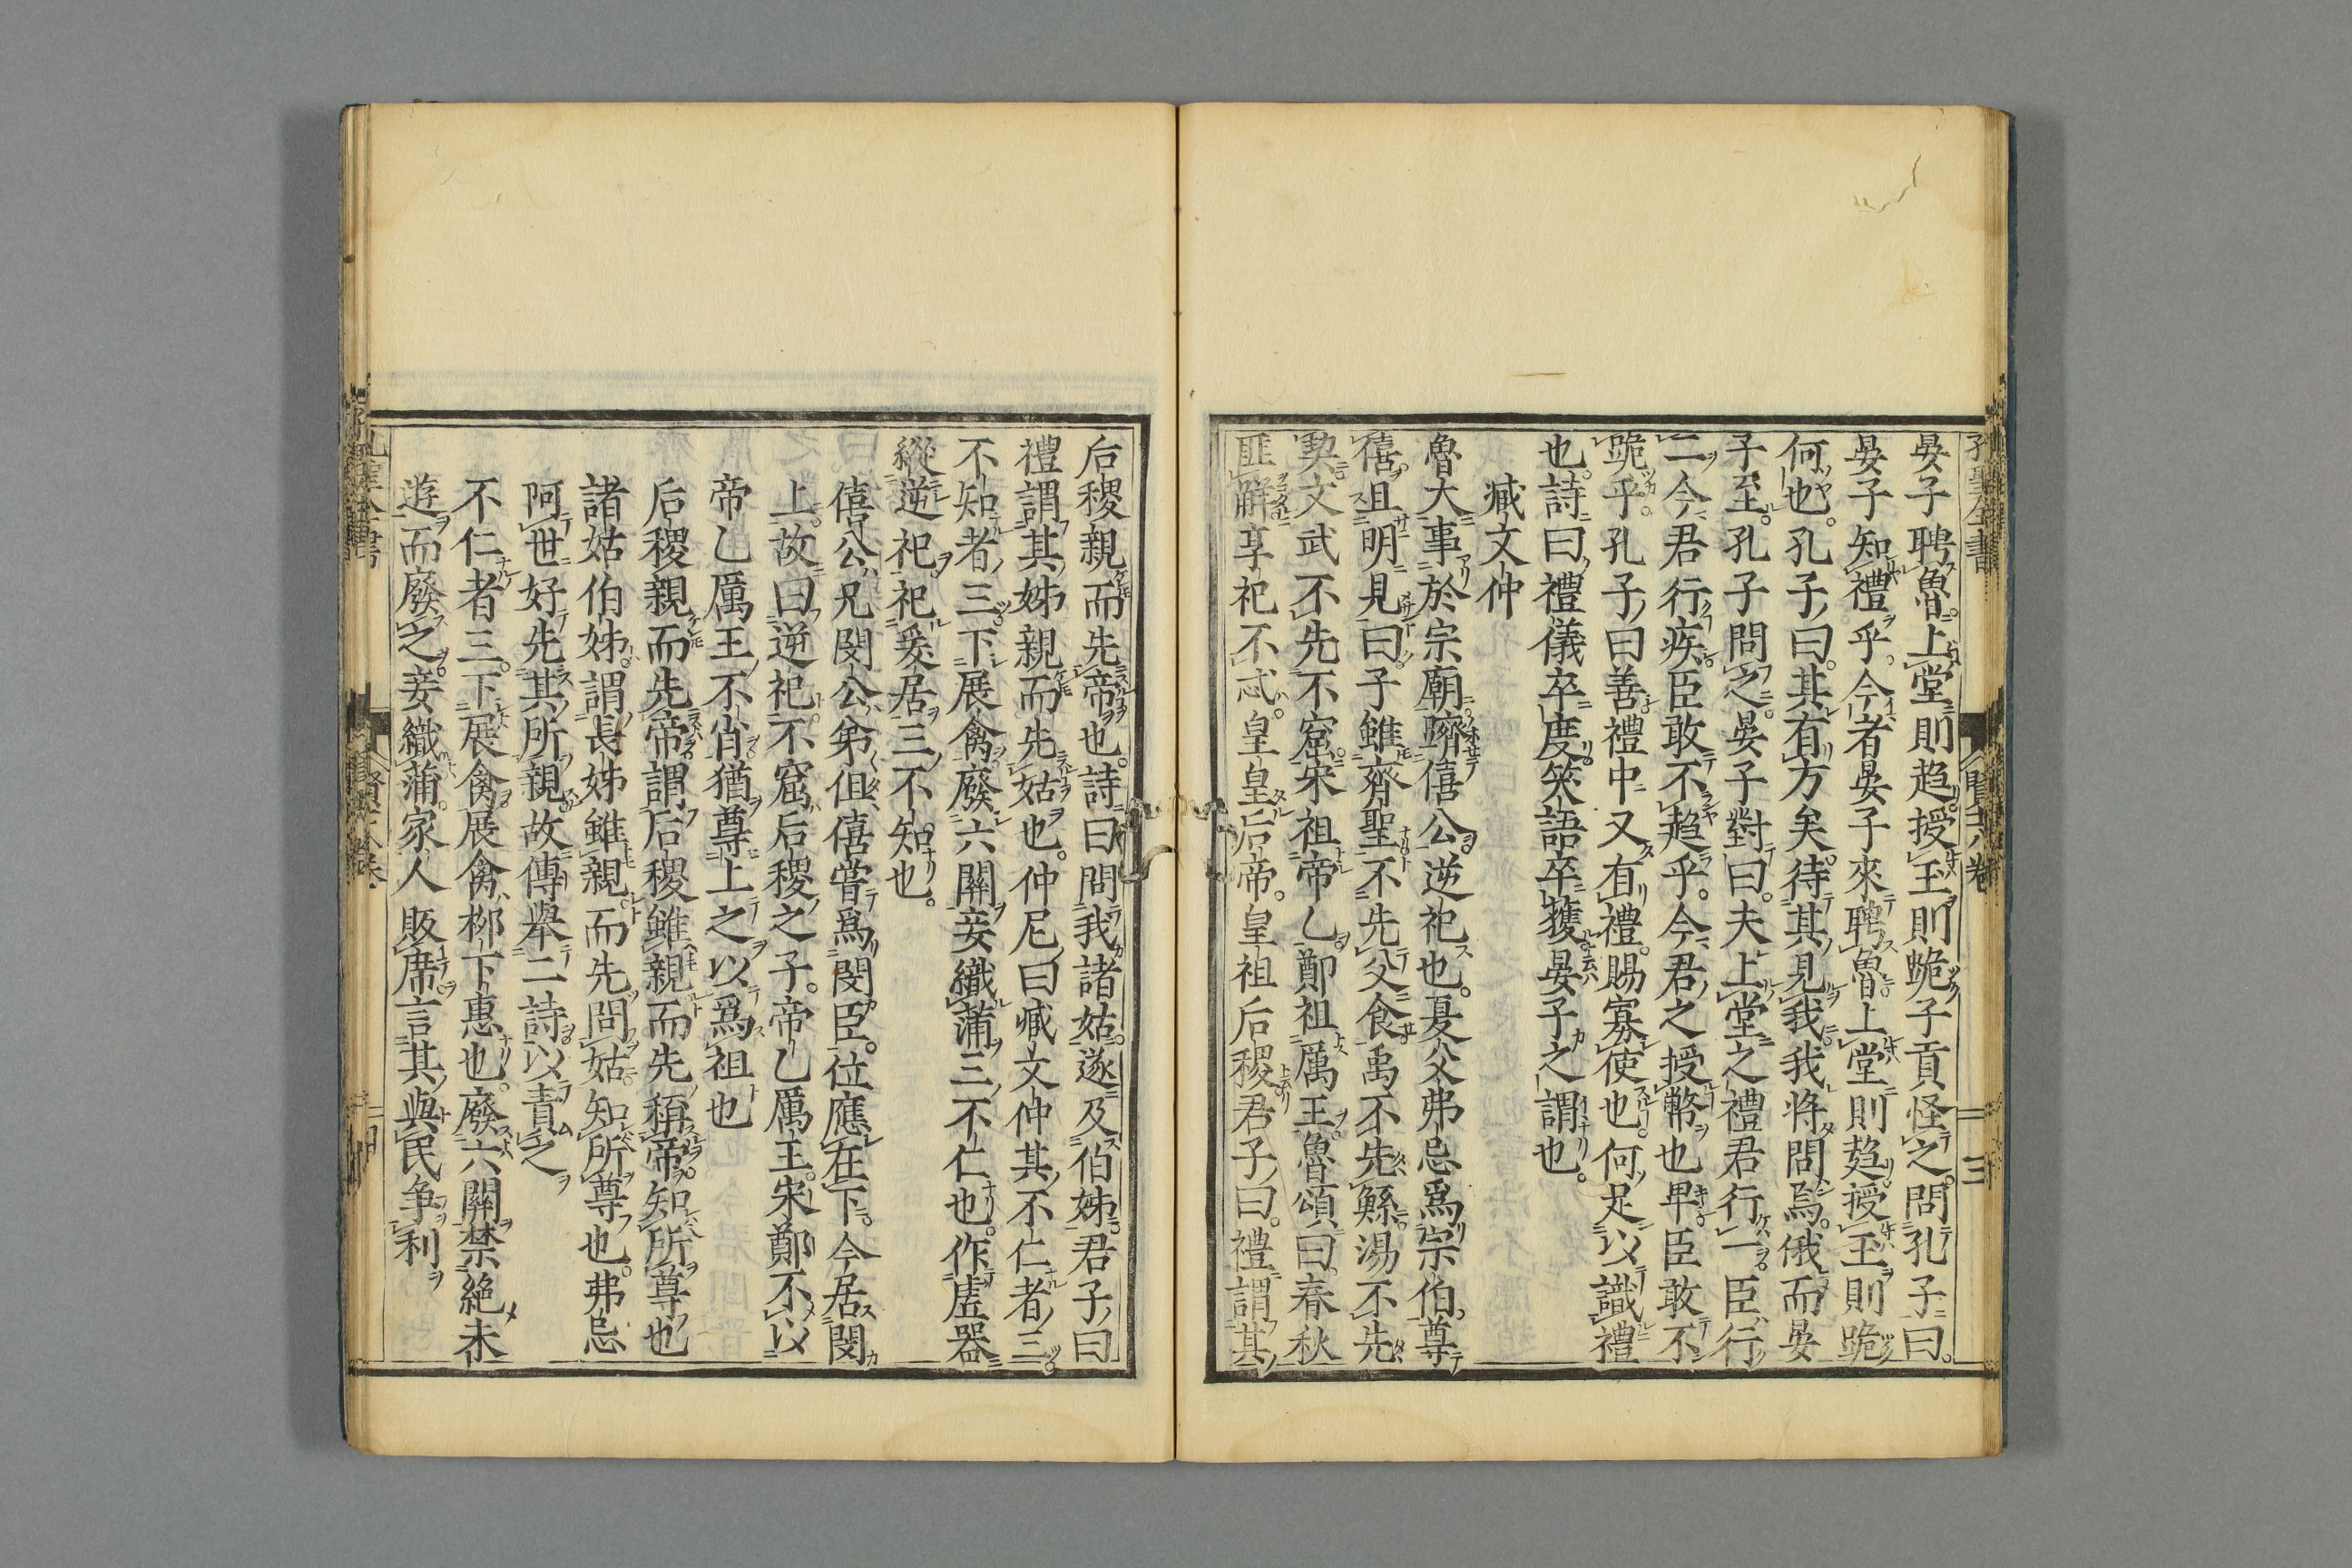 孔聖全書
晏子聘魯。上堂則趋。授玉則跪子貢怪之。問孔子曰。
晏子知禮乎。今者晏子來聘魯。上堂則趋。授玉則跪
何也。孔子曰。其有方矣。待其見我。我將問焉。俄而晏
子至。孔子問之。晏子對曰。夫上堂之禮君行一。臣行
二。今君行疾。臣敢不趋乎。今君之授幣也卑。臣敢不
跪乎。孔子曰善禮中又有禮。賜寡使也。何足以識禮
也。詩曰禮儀卒度。笑語卒獲。晏子之謂也。
臧文仲
魯大事於宗廟躋僖公。逆祀也。夏父弗忌爲宗伯。尊
僖。且明見曰。子雖齊聖不先父食。禹不先鯀。湯不先
契。文武不先不窋。宋祖帝乙。鄭祖厲王。魯頌曰。春秋
匪解享祀不忒。皇皇后帝。皇祖后稷君子曰。禮謂其
后稷親而先帝也。詩曰問我諸姑。遂及伯姊。君子曰
禮謂其姊親而先姑也。仲尼曰臧文仲其不仁者三
不知者三。下展禽。廢六關。妾織蒲。三不仁也。作虛器
縱逆祀。祀爰居。三不知也。
僖公兄閔公弟但僖嘗爲閔臣。位應在下。今居閔
上。故曰逆祀。不窋后稷之子。帝乙厲王。宋鄭不以
帝乙厲王不肖猶尊上之以爲祖也
后稷親而先帝。謂后稷雖親而先稱帝。知所尊也
諸姑伯姊。謂長姊雖親。而先問姑。知所尊也。弗忌
阿世好先其所親。故傳舉二詩以責之
不仁者三。下展禽。展禽柳下惠也。廢六關禁絕未
遊而廢之。妾織蒲。家人販席言其與民爭利